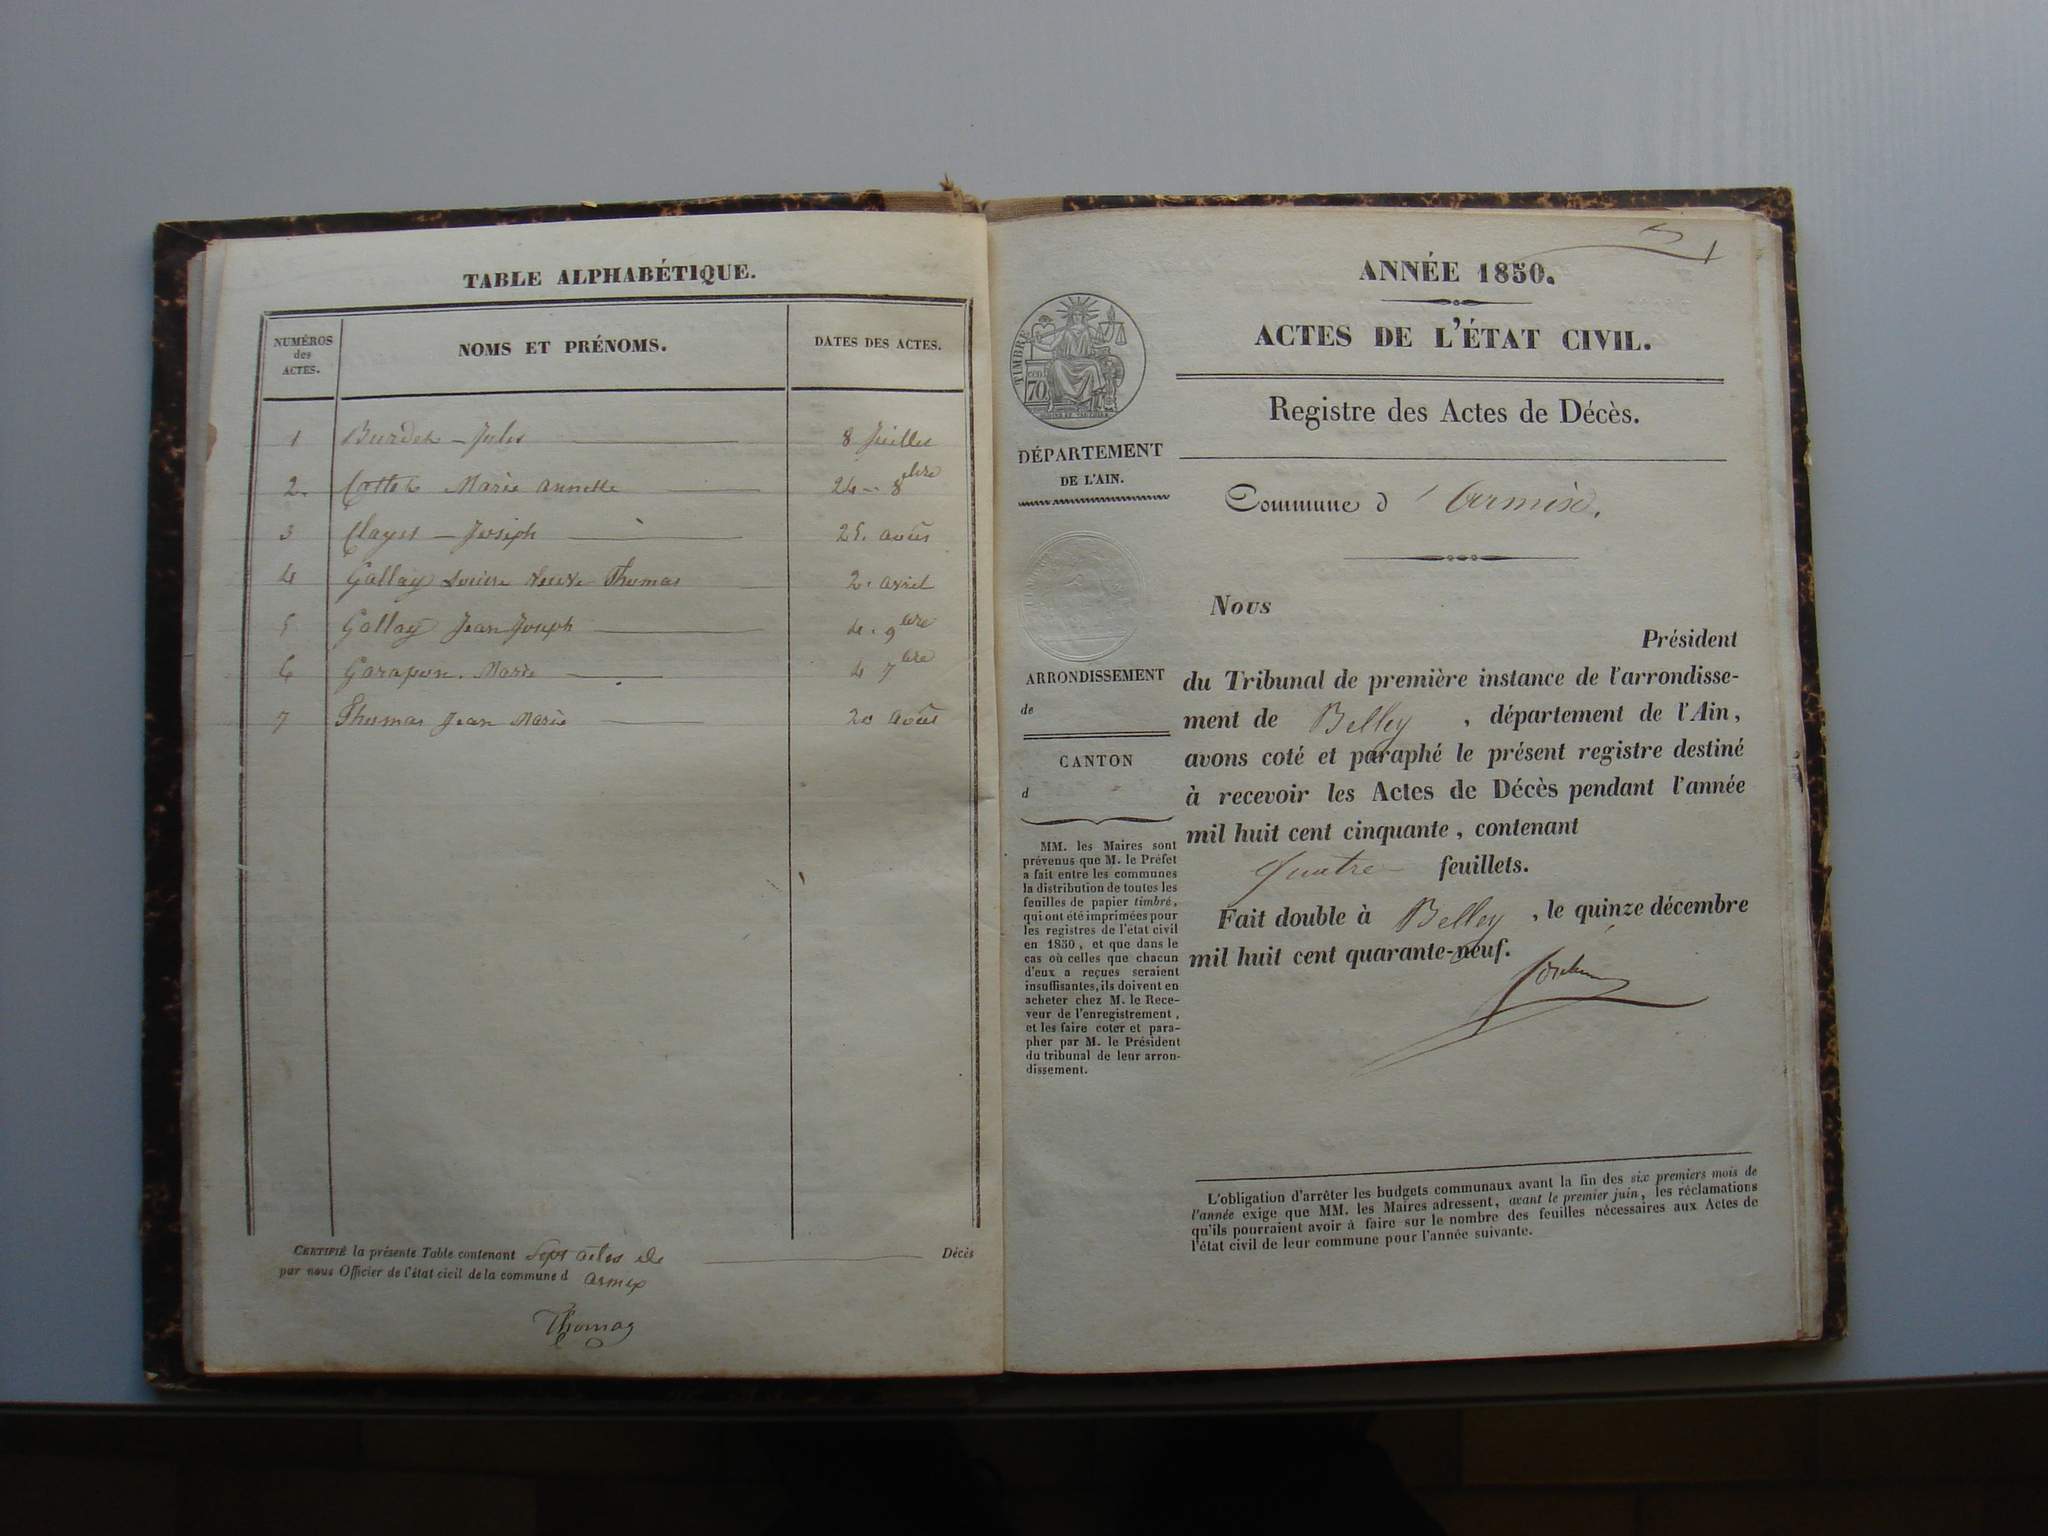 TABLE ALPHABÉTIQUE.
NUMÉROS des ACTES.
NOMS ET PRÉNOMS.
DATES DES ACTES.
1 Burdet - Jules 8 Juillet
2. Cottet Marie annette 24 - 8bre
3 Clayet - Joseph 25. août
4 Gallay Louise Veuve Thomas 2. avril
5 Gallay Jean Joseph 4. 9bre
6 Garapon. Marie 4 7bre
7 Thomas Jean Marie 20 août
CERTIFIÉ la présente Table contenant Sept actes de Décès
par nous Officier de l'état cicil de la commune d armix
Thomas
1
ANNÉE 1850.
ACTES DE L'ÉTAT CIVIL.
Registre des Actes de Décès.
Commune d'Armix.
TIMBRE
70
DÉPARTEMENT
DE L'AIN.
ARRONDISSEMENT
de
CANTON
d
MM. les Maires sont
prévenus que M. le Préfet
a fait entre les communes
la distribution de toutes les
feuilles de papier timbré,
qui ont été imprimées pour
les registres de l'état civil
en 1850, et que dans le
cas où celles que chacun
d'eux a reçues seraient
insuffisantes, ils doivent en
acheter chez M. le Rece-
veur de l'enregistrement,
et les faire coter et para-
pher par M. le Président
du tribunal de leur arron-
dissement.
Nous
Président
du Tribunal de première instance de l'arrondisse-
ment de Belley, département de l'Ain,
avons coté et paraphé le présent registre destiné
à recevoir les Actes de Décès pendant l'année
mil huit cent cinquante, contenant
quatre feuillets.
Fait double à Belley, le quinze décembre
mil huit cent quarante-neuf.
L'obligation d'arrêter les budgets communaux avant la fin des six premiers mois de
l'année exige que MM. les Maires adressent, avant le premier juin, les réclamations
qu'ils pourraient avoir à faire sur le nombre des feuilles nécessaires aux Actes de
l'état civil de leur commune pour l'année suivante.